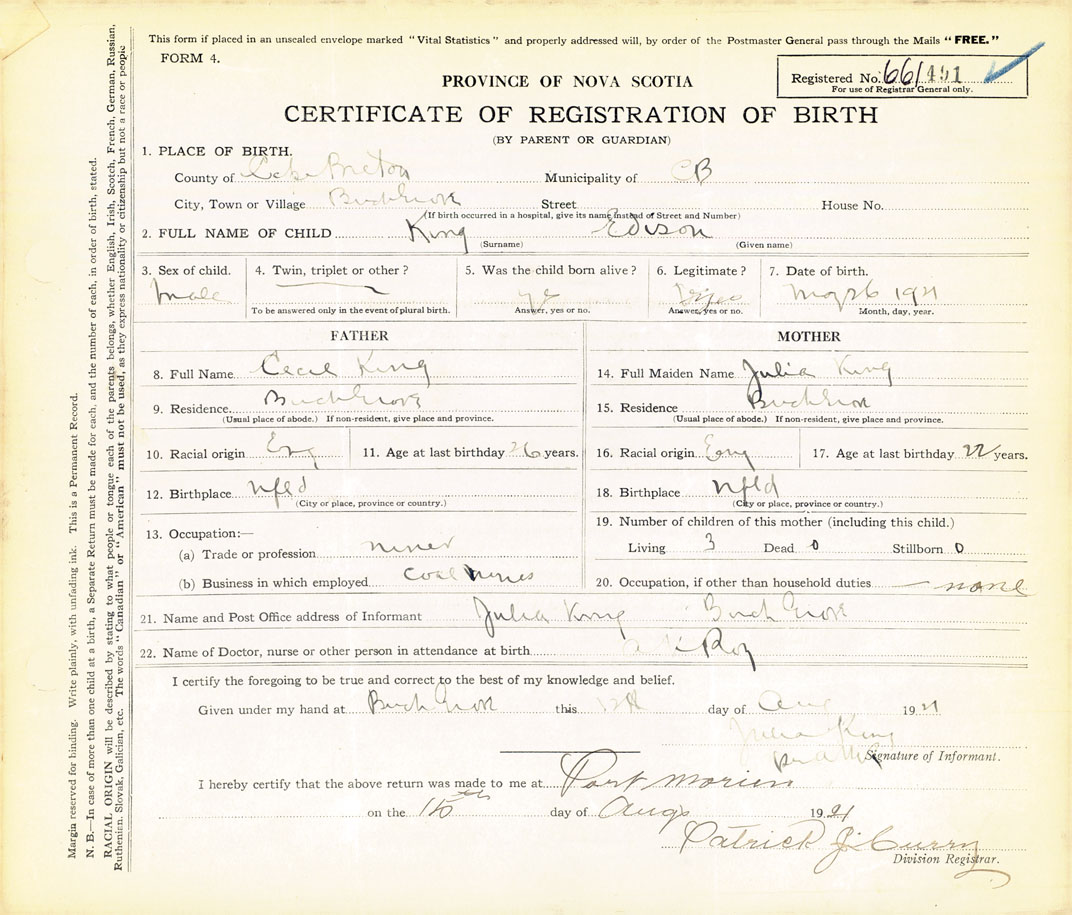 This form if placed in an unsealed envelope marked "Vital Statistics" and properly addressed will, by order of the Postmaster General pass through the Mails "FREE."
FORM 4.
Registered No. 661
For use of Registrar General only.
PROVINCE OF NOVA SCOTIA
CERTIFICATE OF REGISTRATION OF BIRTH
(BY PARENT OR GUARDIAN)
1. PLACE OF BIRTH.
County of Cape Breton Municipality of CB
City, Town or Village Birch Grove Street House No.
(If birth occurred in a hospital, give its name instead of Street and Number)
2. FULL NAME OF CHILD King Edison
(Surname) (Given name)
3. Sex of child. 4. Twin, triplet or other? 5. Was the child born alive? 6. Legitimate? 7. Date of birth.
male Yes May 26 1921
To be answered only in the event of plural birth. Answer, yes or no. Answer, yes or no. Month, day, year.
FATHER MOTHER
8. Full Name Cecil King 14. Full Maiden Name Julia King
9. Residence Birch Grove 15. Residence Birch Grove
(Usual place of abode.) If non-resident, give place and province. (Usual place of abode.) If non-resident, give place and province.
10. Racial origin Eng 11. Age at last birthday 26 years. 16. Racial origin Eng 17. Age at last birthday 22 years.
12. Birthplace nfld 18. Birthplace nfld
(City or place, province or country.) (City or place, province or country.)
13. Occupation:— 19. Number of children of this mother (including this child.)
(a) Trade or profession miner Living 3 Dead 0 Stillborn 0
(b) Business in which employed coal mines 20. Occupation, if other than household duties none
21. Name and Post Office address of Informant Julia King Birch Grove
22. Name of Doctor, nurse or other person in attendance at birth Roy
I certify the foregoing to be true and correct to the best of my knowledge and belief.
Given under my hand at Birch Grove this day of Aug 1921
Julia King
Signature of Informant.
I hereby certify that the above return was made to me at Port Morien
on the 15th day of Aug 1921
Patrick J. Curry
Division Registrar.
Margin reserved for binding. Write plainly, with unfading ink. This is a Permanent Record.
N. B.—In case of more than one child at a birth, a Separate Return must be made for each, and the number of each, in order of birth, stated.
RACIAL ORIGIN will be described by stating to what people or tongue each of the parents belongs, whether English, Irish, Scotch, French, German, Russian,
Ruthenian, Slovak, Galician, etc. The words "Canadian" or "American" must not be used, as they express nationality or citizenship but not a race or people